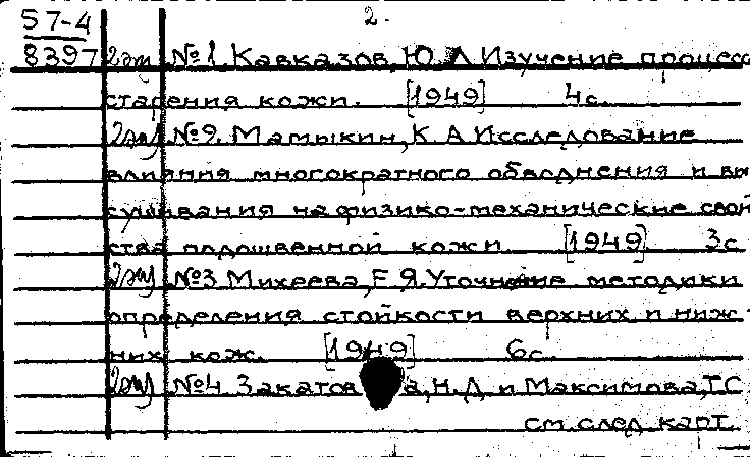 57-4 2.
8397 2эк №1 Кавказов, Ю. А Изучение процесс
старения кожи. [1949] 4с.
2эк №2. Мамыкин, К А Исследование
влияния многократного обводнения и вы
сушивания на физико-механические свой
ства подошвенной кожи. [1949] 3с
2эк №3 Михеева, Е Я. Уточнение методики
определения стойкости верхних и ниж-
них кож. [1949] 6с.
2эк №4 Закатова, Н. Д и Максимова, Т. С
см. след карт.